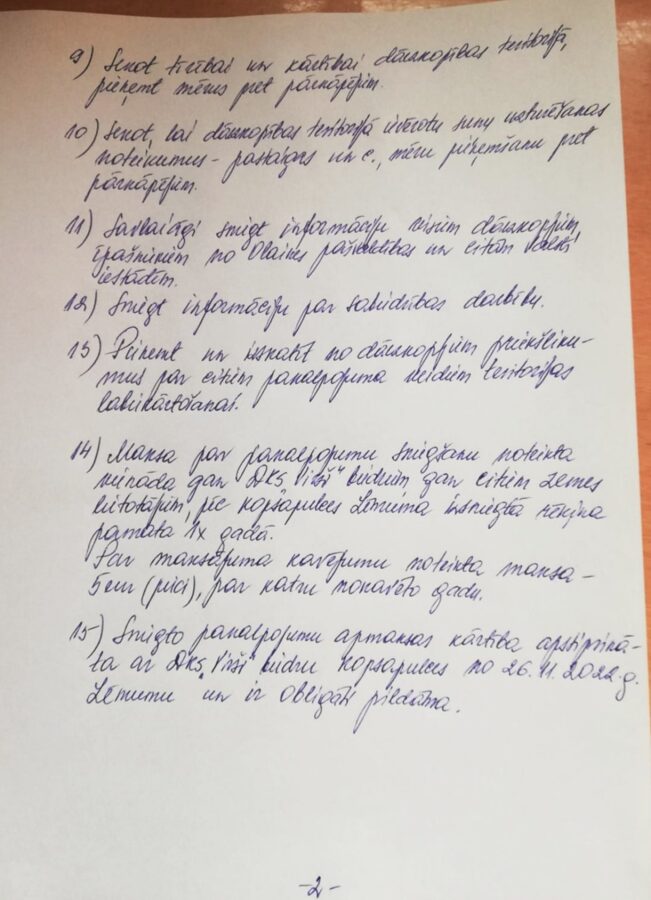 9) Sekot tīrībai un kārtībai dārzkopības teritorijā,
pieņemt mērus pret pārkāpējiem.
10) Sekot, lai dārzkopības teritorijā ievērotu suņu uzturēšanas
noteikumus - pastaigas un c., mēru pieņemšanu pret
pārkāpējiem.
11) Savlaicīgi sniegt informāciju visiem dārzkopjiem,
īpašniekiem no Olaines pašvaldības un citām valsts
iestādēm.
12) Sniegt informāciju par sabiedrības darbību.
13) Pieņemt un izskatīt no dārzkopjiem priekšliku-
mus par citiem pakalpojuma veidiem teritorijas
labiekārtošanai.
14) Maksa par pakalpojumu sniegšanu noteikta
vienāda gan DKS "Virši" biedriem gan citiem zemes
lietotājiem, pēc kopsapulces lēmuma izsniegtā rēķina
pamata 1x gadā.
Par maksājuma kavējumu noteikta maksa -
5 eur (pieci), par katru nokavēto gadu.
15) Sniegto pakalpojumu apmaksas kārtība apstiprinā-
ta ar DKS "Virši" biedru kopsapulces no 26.11.2022.g.
Lēmumu un ir obligāti pildāma.
-2-